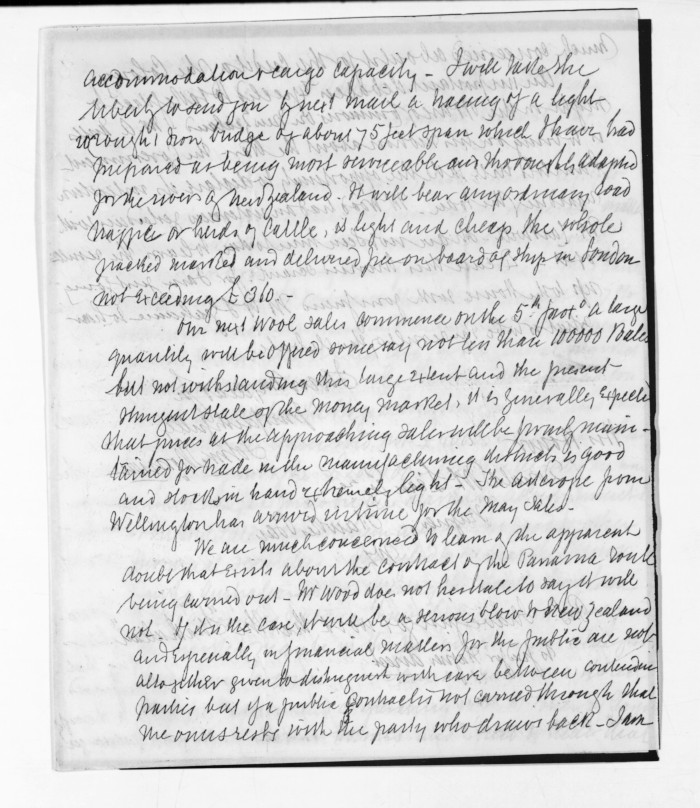 accommodation & cargo capacity - I will take the
liberty to send you by next mail a tracing of a light
wrought Iron bridge of about 75 feet span which I have had
prepared as being most serviceable and thoroughly adapted
for the rivers of New Zealand. It will bear any ordinary road
traffic or herds of Cattle, is light and cheap, the whole
packed marked and delivered free on board of ship in London
not exceeding £360.-
Our next Wool sales commence on the 5th prox.o a large
quantity will be offered some say not less than 100000 Bales
but notwithstanding this large extent and the present
stringent state of the Money Market, it is generally expected
that prices at the approaching sales will be firmly main-
tained for trade in the manufacturing districts is good
and stocks in hand extremely light - The Asterope from
Wellington has arrived in time for the May Sales -
We are much concerned to learn of the apparent
doubt that exists about the contract of the Panama route
being carried out - Mr Wood does not hesitate to say it will
not. If it is the case, it will be a serious blow to New Zealand
and especially in financial matters for the public are not
altogether given to distinguish with care between contending
parties but if a public contract is not carried through that
the onus rests with the party who draws back - I am